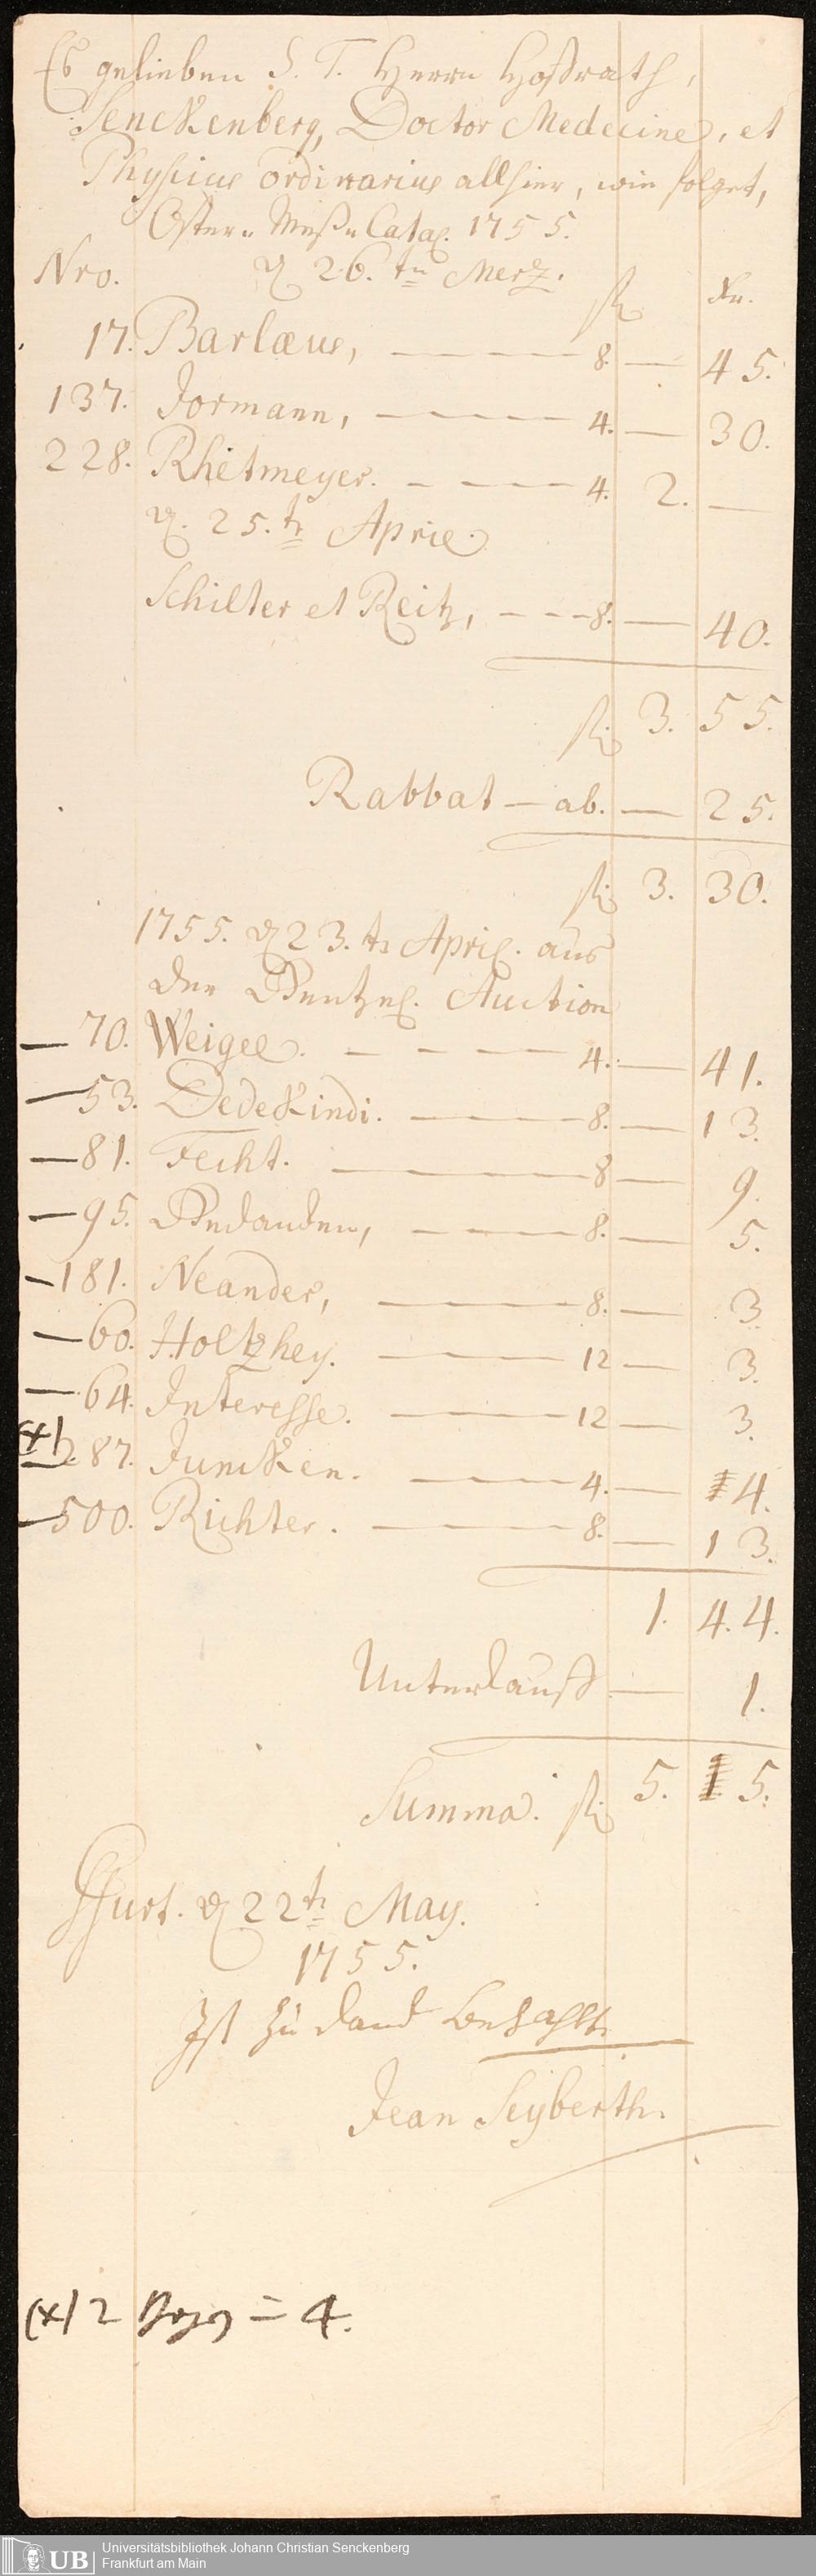 Es gelieben S. T. Herrn Hoffrath,
Senckenberg, Doctor Medecine, et
Physicus ordinarius allhier, wie folget,
Oster- Meß- Catal. 1755.
Nro. d 26. tn Merz.
fl. Kr.
17. Barlæus, — 8. — 45.
137. Jormann, — 4. — 30.
228. Rhetmeyer. — 4. 2. —
d. 25. tn April.
Schilter et Reitz, — 8. — 40.
fl. 3. 55.
Rabbat — ab. — 25.
fl. 3. 30.
1755. d 23. tn April. aus
der Auction
— 70. Weigel. — 4. — 41.
— 53. Dedekindi. — 8. — 13.
— 81. Fecht. — 8 — 9.
— 95. — 8. — 5.
— 181. Neander, — 8. — 3.
— 60. Holtzhey. — 12 — 3.
— 64. Interesse. — 12 — 3.
(x) 287. Juncken. — 4. — 14.
— 500. Richter. — 8. — 13.
1. 44.
Unterkauff — 1.
Summa. fl. 5. 15.
Ffurt. d 22 tn May.
1755.
Ist zu danck bezahlt.
Jean Seyberth.
(x) 2 = 4.
UB Universitätsbibliothek Johann Christian Senckenberg
Frankfurt am Main